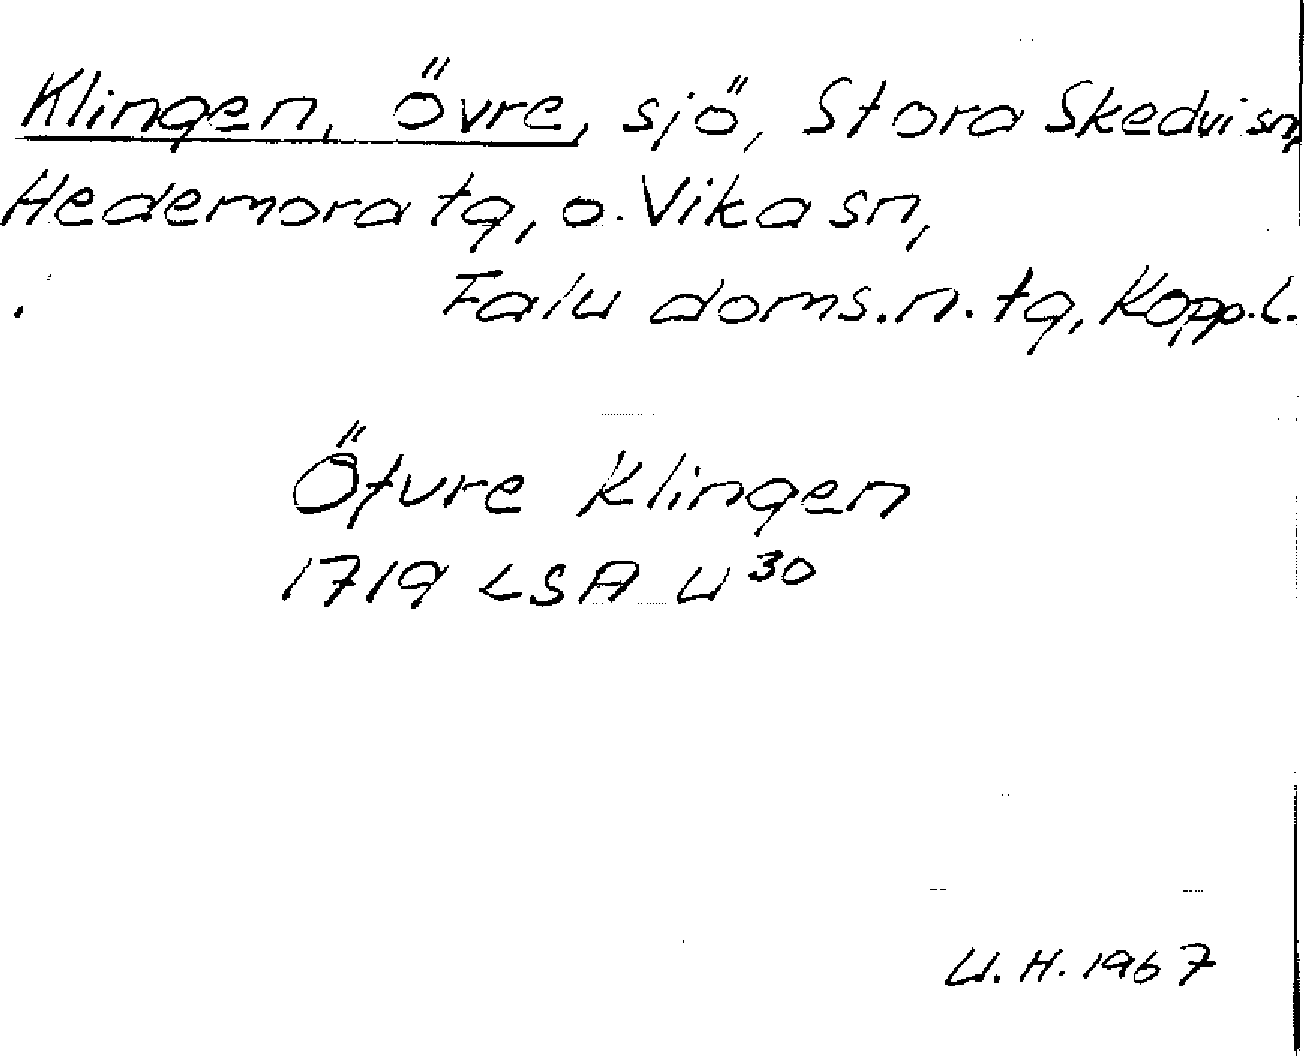 Klingen, övre, sjö, Stora Skedvi sn,
Hedemora tg, o. Vika sn,
Falu doms.n. tg, Kopp.l.
Öfvre Klingen
1719 LSA U 30
U.H. 1967